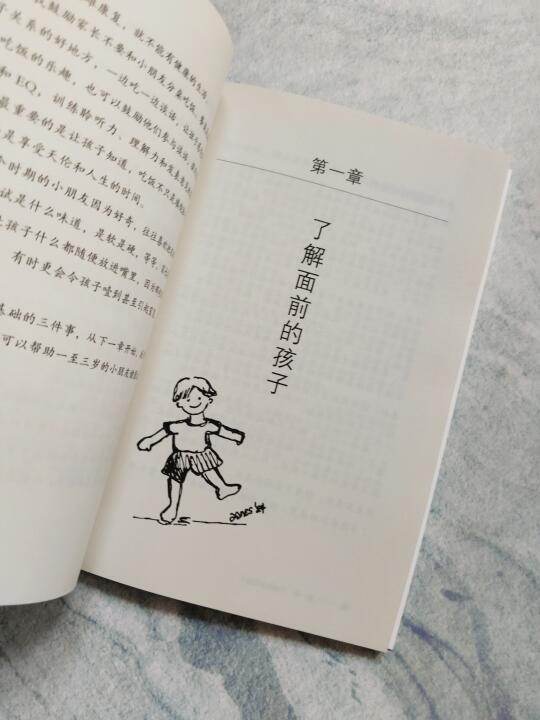 雄康复,就不能有健康的
鼓励家长不要和小朋友分桌吃饭
关系的好地方,一边吃一边谈话,让孩子
吃饭的乐趣,也可以鼓励他们参与谈话
和 EQ,训练聆听力、理解力和发表意见
最重要的是让孩子知道,吃饭不只是
是享受天伦和人生的时间。
个时期的小朋友因为好奇,往往喜欢把
试是什么味道,是软是硬,等等。
让孩子什么都随便放进嘴里,因为
有时更会令孩子噎到甚至引起窒息
基础的三件事,从下一章开始,
可以帮助一至三岁的小朋友
第一章
了解面前的孩子